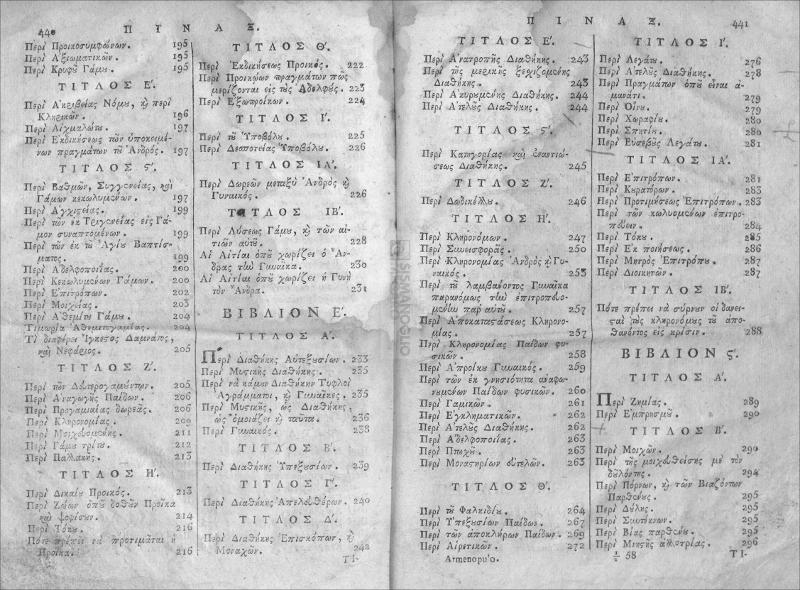 440
ΠΙΝΑΞ.
Περὶ Προικοσυμφώνων. 195
Περὶ Ἀξιωματικῶν. 195
Περὶ Κρυφῦ Γάμυ. 195
ΤΙΤΛΟΣ Ε΄.
Περὶ Ἀκριβείας Νόμυ, ϗ περὶ
Κληρικῶν. 196
Περὶ Αἰχμαλώτυ. 197
Περὶ Ἐκδικήσεως τῶν ὑποκειμέ-
νων πραγμάτων τῦ Ἀνδρός. 197
ΤΙΤΛΟΣ ϛ΄.
Περὶ Βαθμῶν, Συγγενείας, καὶ
Γάμων κεκωλυμένων. 197
Περὶ Ἀγχιστείας. 199
Περὶ τῶν ἐκ Τριγενείας εἰς Γά-
μον συναπτομένων. 199
Περὶ τῶν ἐκ τῦ Ἁγίυ Βαπτίσ-
ματος. 199
Περὶ Ἀδελφοποιΐας. 200
Περὶ Κεκωλυμένων Γάμων. 200
Περὶ Ἐπιτρόπων. 202
Περὶ Μοιχείας. 203
Περὶ Ἀθεμίτυ Γάμυ. 204
Τιμωρία Ἀθεμιτογαμίας. 204
Τί διαφέρει Ἴγκεστος Δαμνάτος,
καὶ Νεφάριος. 205
ΤΙΤΛΟΣ Ζ΄.
Περὶ τῶν Δευτερογαμύντων. 205
Περὶ Ἀναγωγῆς Παίδων. 206
Περὶ Προγαμιαίας δωρεᾶς. 206
Περὶ Κληρονομίας. 209
Περὶ Μοιχευομένης. 211
Περὶ Γάμυ τρίτυ. 212
Περὶ Παλλακῆς. 213
ΤΙΤΛΟΣ Η΄.
Περὶ Δικαίυ Προικός. 213
Περὶ Ζώων ὁπῦ δοθῦν Προῖκα
καὶ ψοφίσυν. 214
Περὶ Τόκυ. 216
Πότε πρέπει νὰ προτιμᾶται ἡ
Προῖκα. 216
ΤΙΤΛΟΣ Θ΄.
Περὶ Ἐκδικήσεως Προικός. 222
Περὶ Προικῴων πραγμάτων πῶς
μερίζονται εἰς τὺς Ἀδελφύς. 223
Περὶ Ἐξωπροίκων. 224
ΤΙΤΛΟΣ Ι΄.
Περὶ τῦ Ὑποβόλυ. 225
Περὶ Δεσποτείας Ὑποβόλυ. 226
ΤΙΤΛΟΣ ΙΑ΄.
Περὶ Δωρεῶν μεταξὺ Ἀνδρὸς ϗ
Γυναικός. 226
ΤΙΤΛΟΣ ΙΒ΄.
Περὶ Λύσεως Γάμυ, ϗ τῶν αἰ-
τιῶν αὐτῦ. 228
Αἱ Αἰτίαι ὁπῦ χωρίζει ὁ Ἄν-
δρας τὴν Γυναῖκα. 230
Αἱ Αἰτίαι ὁπῦ χωρίζει ἡ Γυνὴ
τὸν Ἄνδρα. 231
ΒΙΒΛΙΟΝ Ε΄.
ΤΙΤΛΟΣ Α΄.
Περὶ Διαθήκης Αὐτεξυσίων. 233
Περὶ Μυστικῆς Διαθήκης. 235
Περὶ νὰ κάμυν Διαθήκην Τυφλοὶ
Ἀγράμματοι, ϗ Γυναῖκες. 235
Περὶ Μυστικῆς, ὡς Διαθήκης,
ὡς ὁμοιάζει ϗ ταύτα. 236
Περὶ Γυναικός. 238
ΤΙΤΛΟΣ Β΄.
Περὶ Διαθήκης Ὑπεξυσίων. 239
ΤΙΤΛΟΣ Γ΄.
Περὶ Διαθήκης Ἀπελευθέρων. 240
ΤΙΤΛΟΣ Δ΄.
Περὶ Διαθήκης Ἐπισκόπων, ϗ
Μοναχῶν. 242
ΤΙ-
ΠΙΝΑΞ.
441
ΤΙΤΛΟΣ Ε΄.
Περὶ Ἀνατροπῆς Διαθήκης. 243
Περὶ τῆς μερικῆς ξεριζομένης
Διαθήκης. 243
Περὶ Ἀκυρυμένης Διαθήκης. 244
Περὶ Ἀτελῦς Διαθήκης. 244
ΤΙΤΛΟΣ ϛ΄.
Περὶ Κατηγορίας καὶ ἐναντιώ-
σεως Διαθήκης. 245
ΤΙΤΛΟΣ Ζ΄.
Περὶ Δωδικέλλυ. 246
ΤΙΤΛΟΣ Η΄.
Περὶ Κληρονόμων. 247
Περὶ Συνεισφορᾶς. 250
Περὶ Κληρονομίας Ἀνδρὸς ϗ Γυ-
ναικός. 253
Περὶ τῦ λαμβάνοντος Γυναῖκα
παρανόμως τὴν ἐπιτροπευο-
μένην παρ' αὐτῦ. 257
Περὶ Ἀποκαταστάσεως Κληρονο-
μίας. 257
Περὶ Κληρονομίας Παίδων φυ-
σικῶν. 258
Περὶ Ἀπροίκυ Γυναικός. 259
Περὶ τῶν ἐκ γνησιότητα ἀναφω-
νυμένων Παίδων φυσικῶν. 260
Περὶ Γαμικῶν. 261
Περὶ Ἐγκληματικῶν. 262
Περὶ Ἀτελῦς Διαθήκης. 262
Περὶ Ἀδελφοποιΐας. 263
Περὶ Πτωχῦ. 263
Περὶ Μοναστηρίων εὐτελῶν. 263
ΤΙΤΛΟΣ Θ΄.
Περὶ τῦ Φαλκιδίυ. 264
Περὶ Ὑπεξυσίων Παίδων. 267
Περὶ τῶν ἀποκλήρων Παίδων. 269
Περὶ Αἱρετικῶν. 272
Armenopulo.
ΤΙΤΛΟΣ Ι΄.
Περὶ Λεγάτυ. 276
Περὶ Ἀτελῦς Διαθήκης. 278
Περὶ Πραγμάτων ὁπῦ εἶναι ἀ-
μανάτι. 279
Περὶ Οἴνυ. 279
Περὶ Χωραφίυ. 280
Περὶ Σπιτίυ. 280
Περὶ Εὐσεβῦς Λεγάτυ. 281
ΤΙΤΛΟΣ ΙΑ΄.
Περὶ Ἐπιτρόπων. 281
Περὶ Κυρατόρων. 283
Περὶ Προτιμήσεως Ἐπιτρόπων. 283
Περὶ τῶν κωλυομένων ἐπιτρο-
πεύειν. 284
Περὶ Τόκυ. 285
Περὶ Ἐκποιήσεως. 286
Περὶ Μητρὸς Ἐπιτρόπυ. 287
Περὶ Διοικητῶν. 287
ΤΙΤΛΟΣ ΙΒ΄.
Πότε πρέπει νὰ σύρνυν οἱ δανει-
σταὶ τὺς κληρονόμυς τῦ ἀπο-
θανόντος εἰς κρίσιν. 288
ΒΙΒΛΙΟΝ ϛ΄.
ΤΙΤΛΟΣ Α΄.
Περὶ Ζημίας. 289
Περὶ Ἐμπρησμῦ. 290
ΤΙΤΛΟΣ Β΄.
Περὶ Μοιχῶν. 290
Περὶ τῆς μοιχευθείσης μὲ τὸν
δῦλόντης. 294
Περὶ Πόρνων, ϗ τῶν Βιαζόντων
Παρθένυς. 295
Περὶ Δύλης. 295
Περὶ Συντέκνων. 295
Περὶ Βίας παρθένυ. 295
Περὶ Μνηστῆς ἀλλοτρίας. 296
58
ΤΙ-